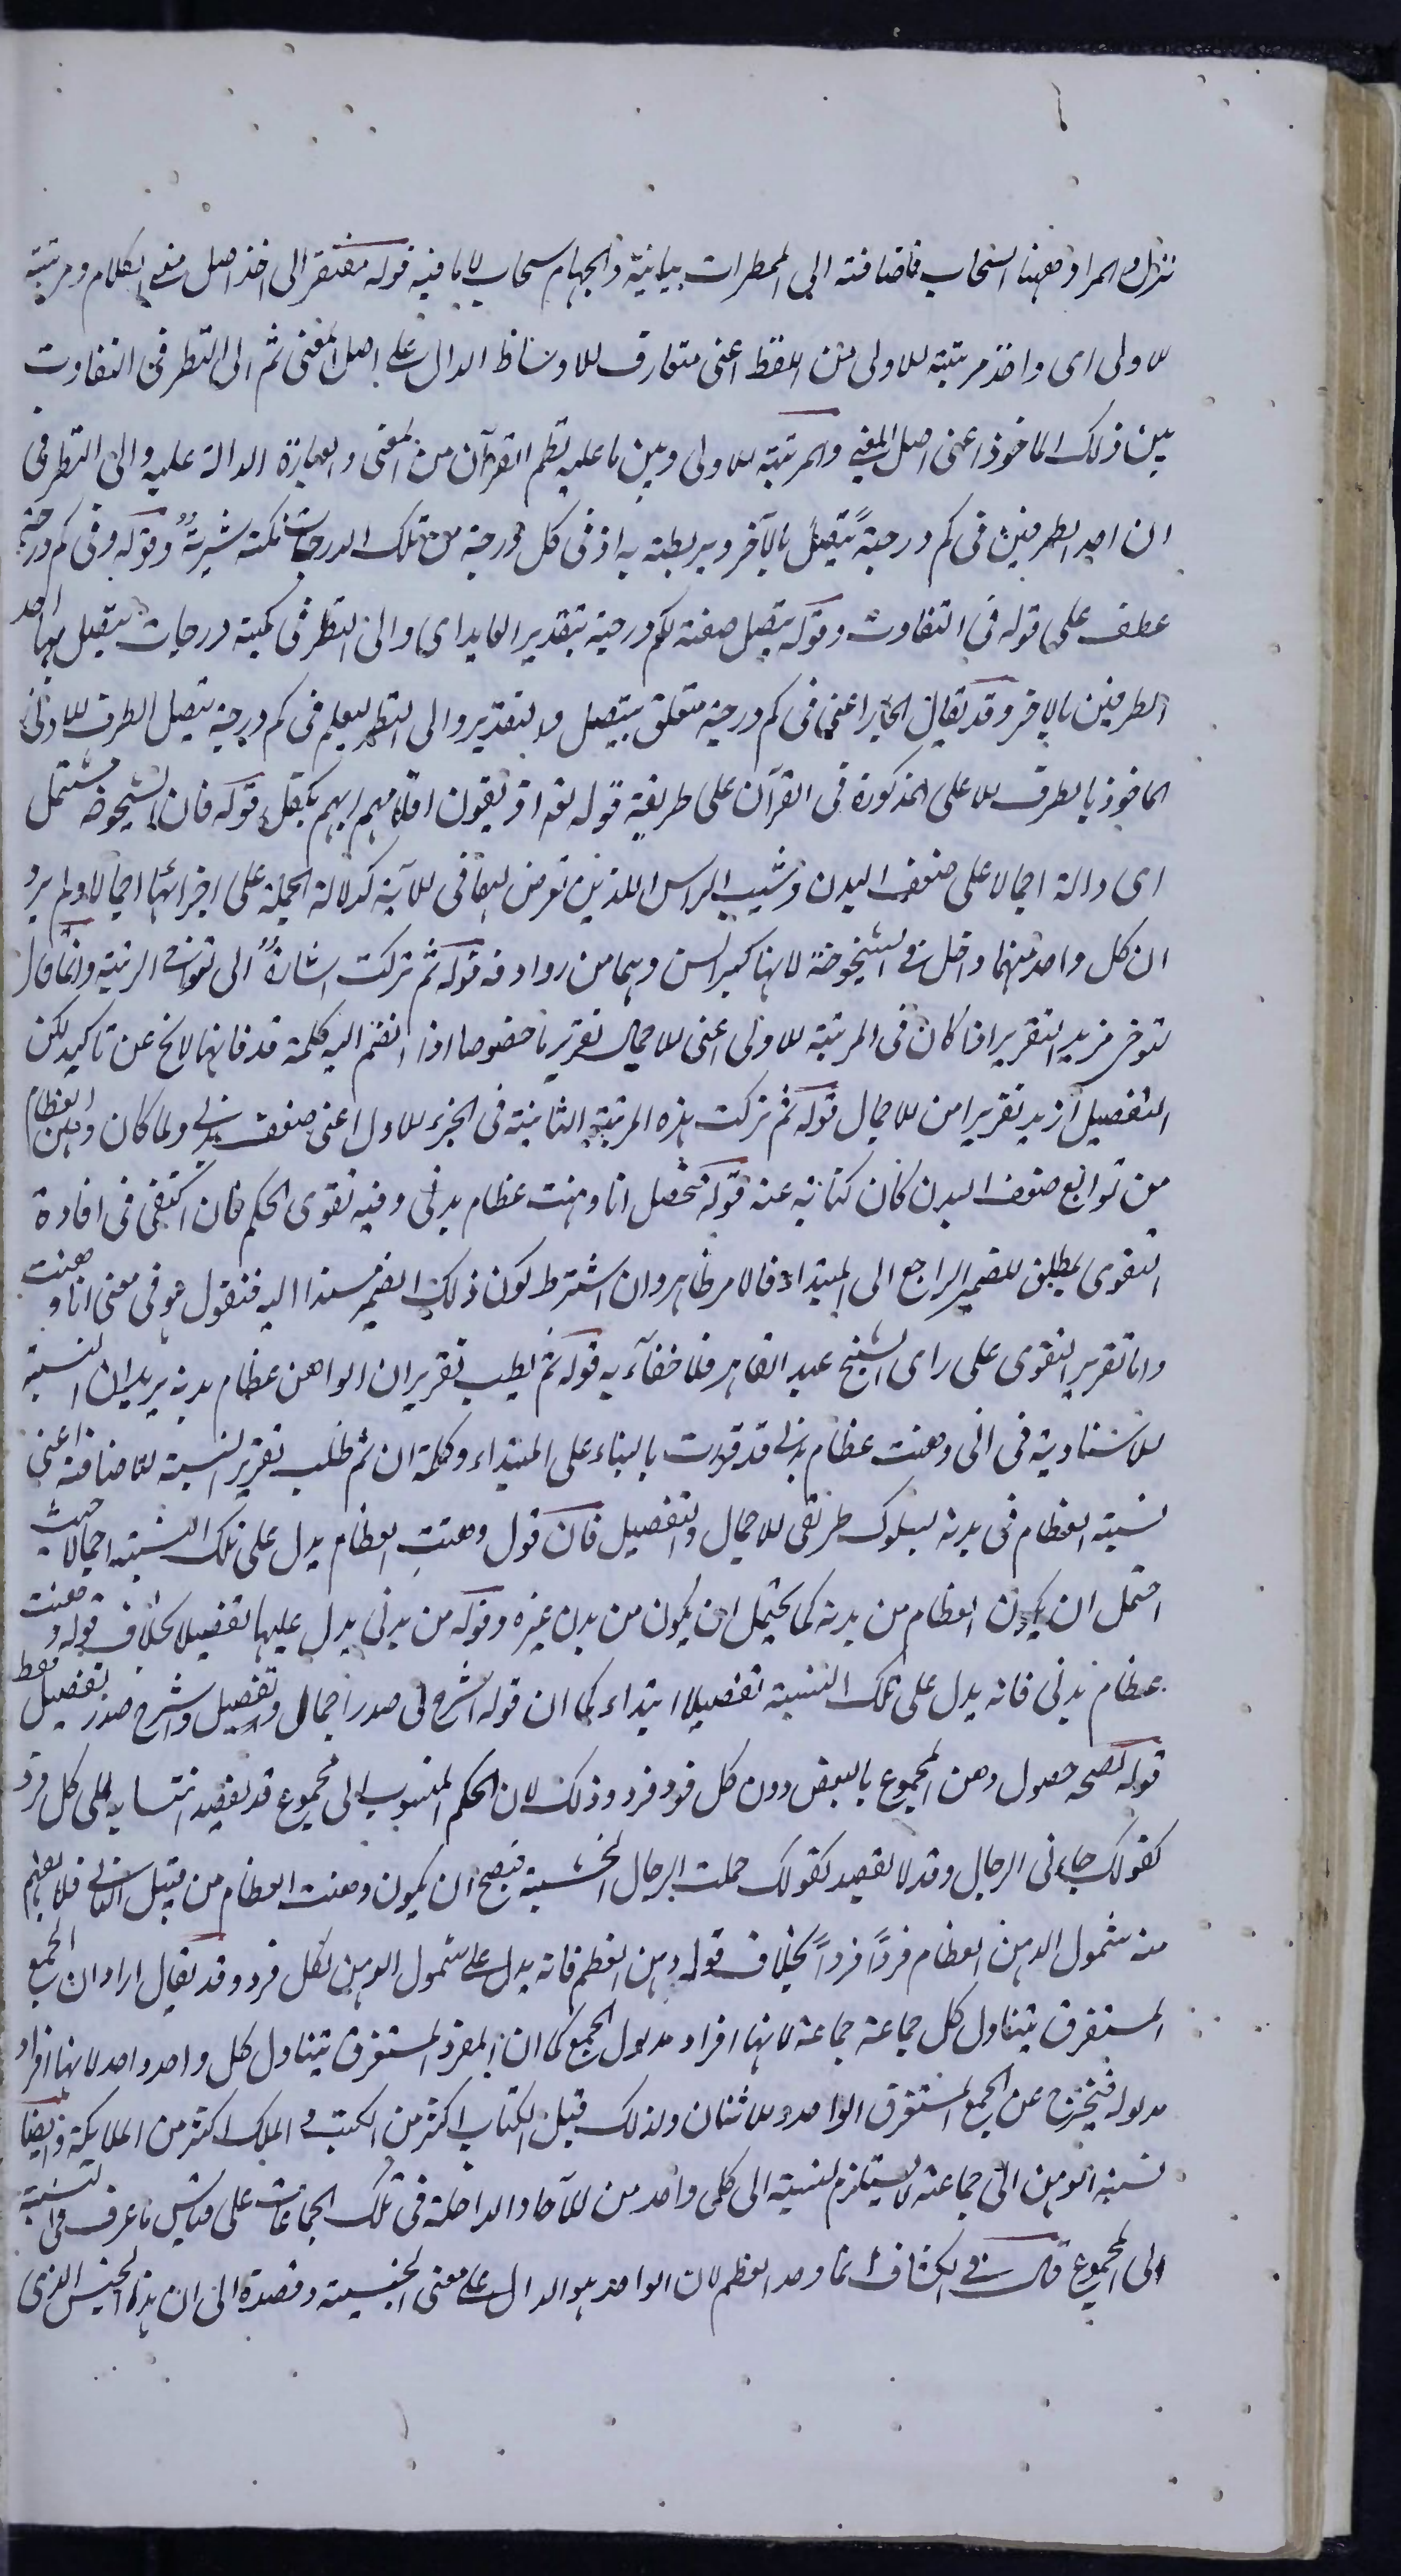 تنزل والمراد ههنا السحاب فاضافته الى الممطرات بيانية والجهام سحاب لا ما فيه قوله مفتقر الى اخذ اصل معنى الكلام ومرتبته
الاولى اى واخذ مرتبته الاولى من اللفظ اعنى متعارف الاوساط الدال على اصل المعنى ثم الى النظر فى التفاوت
بين ذلك الماخوذ اعنى اصل المعنى والمرتبة الاولى وبين ما عليه نظم القرآن من المعنى والعبارة الدالة عليه والى النظر فى
ان احد الطرفين فى كم درجةً يتصل بالآخر ويربطه به اذ فى كل درجة من تلك الدرجات نكتة شريةٌ وقوله وفى كم درجة
عطف على قوله فى التفاوت وقوله يتصل صفة لكم درجة بتقدير العايد اى والى النظر فى كمية درجات يتصل بها احد
الطرفين بالاخر وقد يقال الجار اعنى فى كم درجة متعلق بيتصل والتقدير والى النظر ليعلم فى كم درجة يتصل الطرف الادنى
الماخوذ بالطرف الاعلى المذكورة فى القرآن على طريقة قوله تع اذ يلقون اقلامهم ايهم يكفل قوله فان الشيخوخة مشتمل
اى دالة اجمالا على ضعف البدن وشيب الراس اللذين تعرض لهما فى الآية كدلالة الجملة على اجزائها اجمالا ولم يرد
ان كل واحد منهما داخل فى الشيخوخة لانها كبر السن وهما من روادفه قوله ثم تركت اشارةٌ الى تفاوت الرتبة وانما قال
لتوخى مزيد التقرير اذ كان فى المرتبة الاولى اعنى الاجمال تقرير ما خصوصا اذا انضم اليه كلمة قد فانها لا تخ عن تاكيد لكن
التفصيل ازيد تقريرا من الاجمال قوله ثم تركت هذه المرتبة الثانية فى الجزء الاول اعنى ضعف بدنى ولما كان وهن العظام
من توابع ضعف البدن كان كناية عنه قوله فحصل انا وهنت عظام بدنى وفيه تقوى الحكم فان اكتفى فى افادة
التقوى بمطلق الضمير الراجع الى المبتداء فالامر ظاهر وان اشترط كون ذلك الضمير مسندا اليه فنقول هو فى معنى انا وهنت
واما تقرير التقوى على راى الشيخ عبد القاهر فلا خفآء به قوله ثم لطلب تقرير ان الواهن عظام بدنه يريد ان النسبة
الاسنادية فى انى وهنت عظام بدنى قد قررت بالبناء على المبتداء وكلمة ان ثم طلب تقرير النسبة الاضافية اعنى
نسبة العظام فى بدنه لسلوك طريقى الاجمال والتفصيل فان قول وهنت العظام يدل على تلك النسبة اجمالا حيث
احتمل ان يكون العظام من بدنه كما يحتمل ان يكون من بدن غيره وقوله من بدنى يدل عليها تفصيلا بخلاف قوله وهنت
عظام بدنى فانه يدل على تلك النسبة تفصيلا ابتداء كما ان قوله اشرح لى صدر اجمال وتفصيل واشرح صدر تفصيل فقط
قوله لصحة حصول وهن المجموع بالبعض دون كل فرد فرد وذلك لان الحكم المنسوب الى مجموع قد يقصد انتسابه الى كل فرد
كقولك جاءنى الرجال وقد لا يقصد كقولك حملت الرجال الخشبة فيصح ان يكون وهنت العظام من قبيل الثانى فلا يفهم
منه شمول الوهن العظام فرداً فرداً بخلاف قوله وهن العظم فانه يدل على شمول الوهن لكل فرد وقد يقال اراد ان الجمع
المستغرق يتناول كل جماعة جماعة لانها افراد مدلول الجمع كما ان المفرد المستغرق يتناول كل واحد واحد لانها افراد
مدلوله فيخرج عن الجمع المستغرق الواحد والاثنان ولذلك قيل الكتاب اكثر من الكتب والملك اكثر من الملايكة وايضا
نسبة الوهن الى جماعة لا يستلزم نسبته الى كل واحد من الآحاد الداخلة فى تلك الجماعات على قياس ما عرف فى النسبة
الى المجموع قال فى الكشاف انما وحد العظم لان الواحد هو الدال على معنى الجنسية وقصده الى ان هذا الجنس الذى